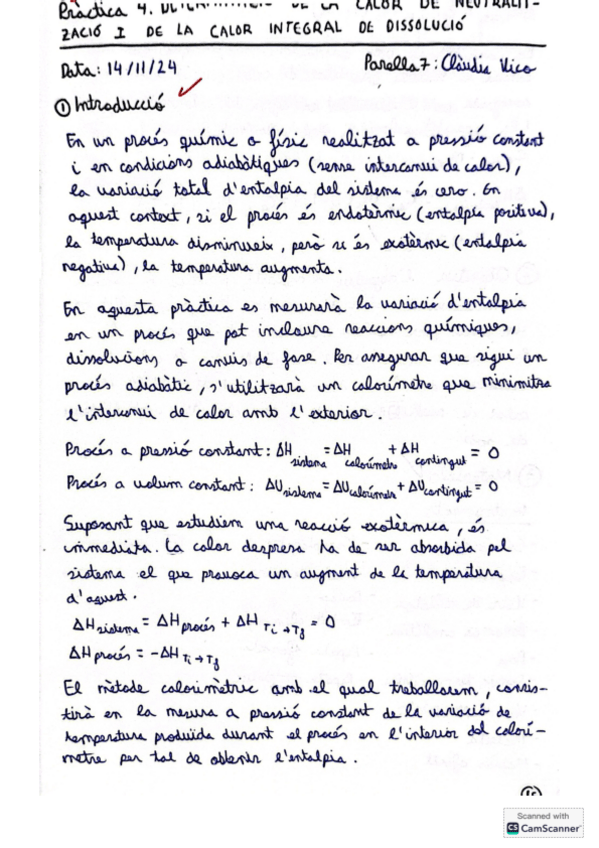 Pràctica 4. DETERMINACIÓ DE LA CALOR DE NEUTRALIT-
ZACIÓ I DE LA CALOR INTEGRAL DE DISSOLUCIÓ
Data: 14/11/24 Parella 7: Clàudia Vico
① Introducció
En un procés químic o físic realitzat a pressió constant
i en condicions adiabàtiques (sense intercanvi de calor),
la variació total d'entalpia del sistema és cero. En
aquest context, si el procés és endotèrmic (entalpía positiva),
la temperatura disminueix, però si és exotèrmic (entalpia
negativa), la temperatura augmenta.
En aquesta pràctica es mesurarà la variació d'entalpia
en un procés que pot incloure reaccions químiques,
dissolucions o canvis de fase. Per assegurar que sigui un
procés adiabàtic, s'utilitzarà un calorímetre que minimitza
l'intercanvi de calor amb l'exterior.
Procés a pressió constant: ΔH sistema = ΔH calorímetre + ΔH contingut = 0
Procés a volum constant: ΔU sistema = ΔU calorímetre + ΔU contingut = 0
Suposant que estudiem una reacció exotèrmica, és
immediata. La calor despresa ha de ser absorbida pel
sistema el que provoca un augment de la temperatura
d'aquest.
ΔH sistema = ΔH procés + ΔH Ti→Tf = 0
ΔH procés = -ΔH Ti→Tf
El mètode calorimètric amb el qual treballarem, consis-
tirà en la mesura a pressió constant de la variació de
temperatura produïda durant el procés en l'interior del calorí-
metre per tal de obtenir l'entalpia.
Scanned with
CS CamScanner